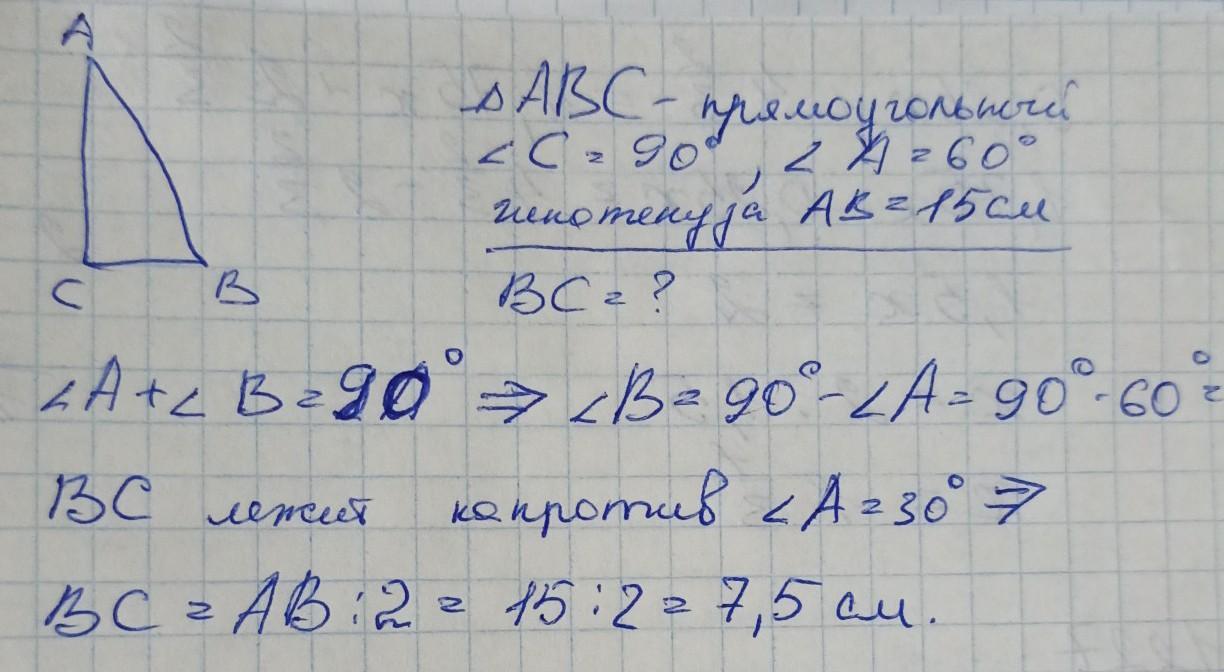 A
C
B
△ABC - прямоугольный
∠C = 90°, ∠A = 60°
гипотенуза AB = 15 см
BC = ?
∠A + ∠B = 90° ⇒ ∠B = 90° - ∠A = 90° - 60° =
BC лежит напротив ∠A = 30° ⇒
BC = AB : 2 = 15 : 2 = 7,5 см.